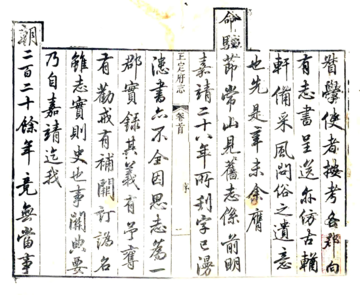 督學使者按考各郡向
有志書呈送亦仿古輶
軒備采風問俗之遺意
也先是辛未余膺
命駐節常山見舊志係前明
嘉靖二十八年所刊字已漫
正定府志 卷首 序 一
漶書亦不全因思志為一
郡實錄其義有予奪
有勸戒有補闕訂譌名
雖志實則史也事關典要
乃自嘉靖迄我
朝二百二十餘年竟無當事